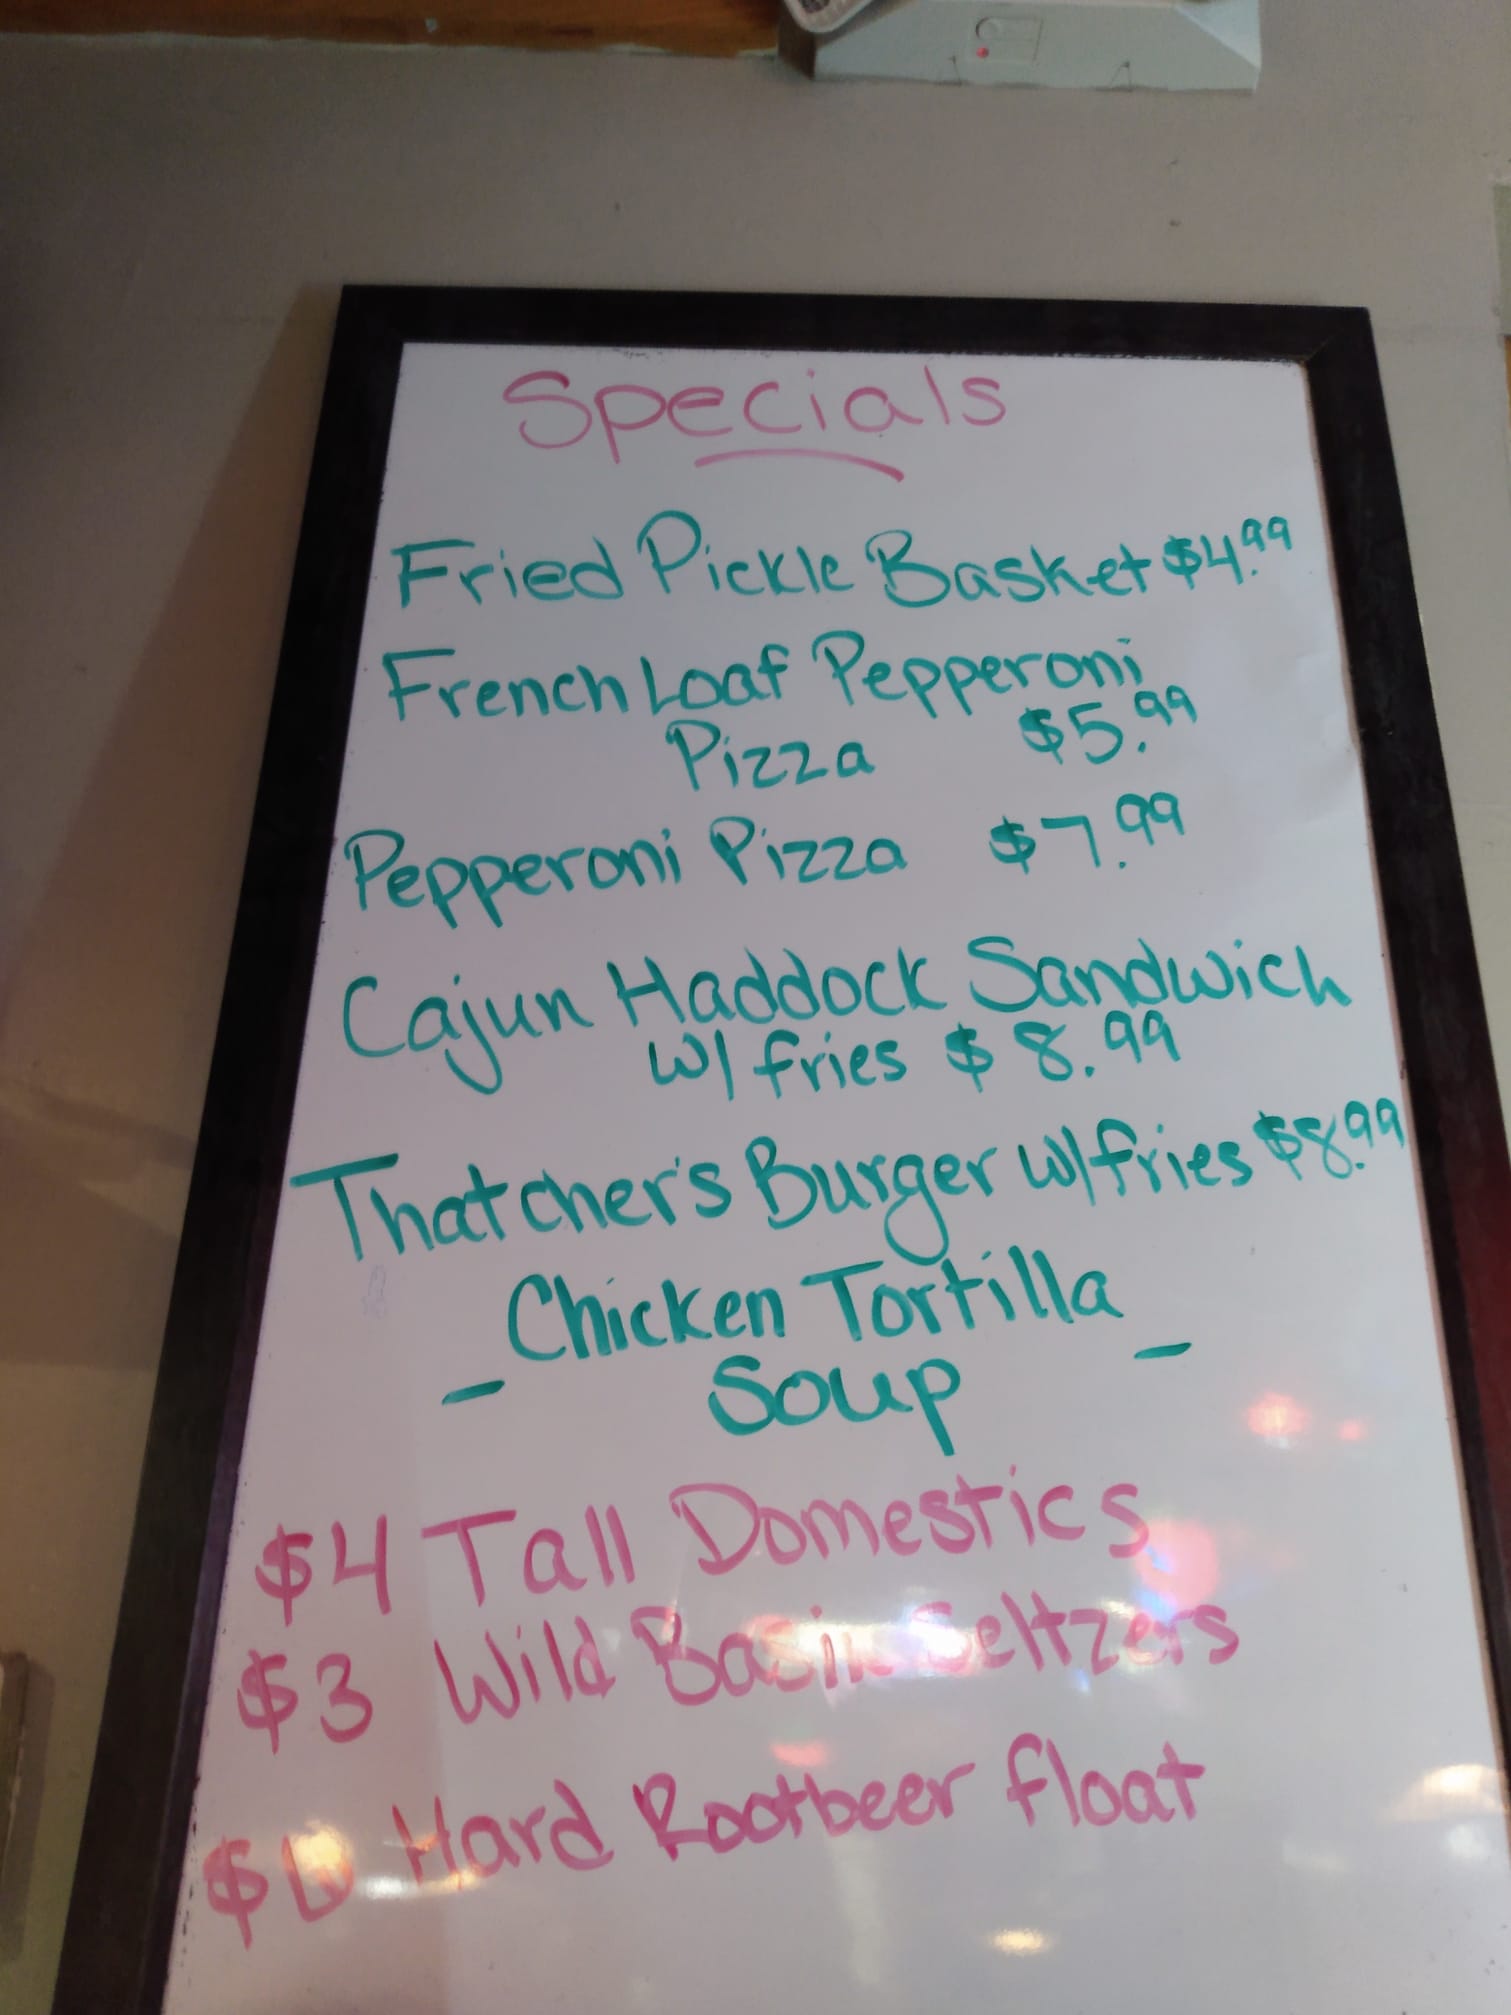 Specials
Fried Pickle Basket $4.99
French Loaf Pepperoni
Pizza $5.99
Pepperoni Pizza $7.99
Cajun Haddock Sandwich
w/ fries $8.99
Thatcher's Burger w/fries $8.99
- Chicken Tortilla -
Soup
$4 Tall Domestics
$3 Wild Basin Seltzers
Hard Rootbeer float